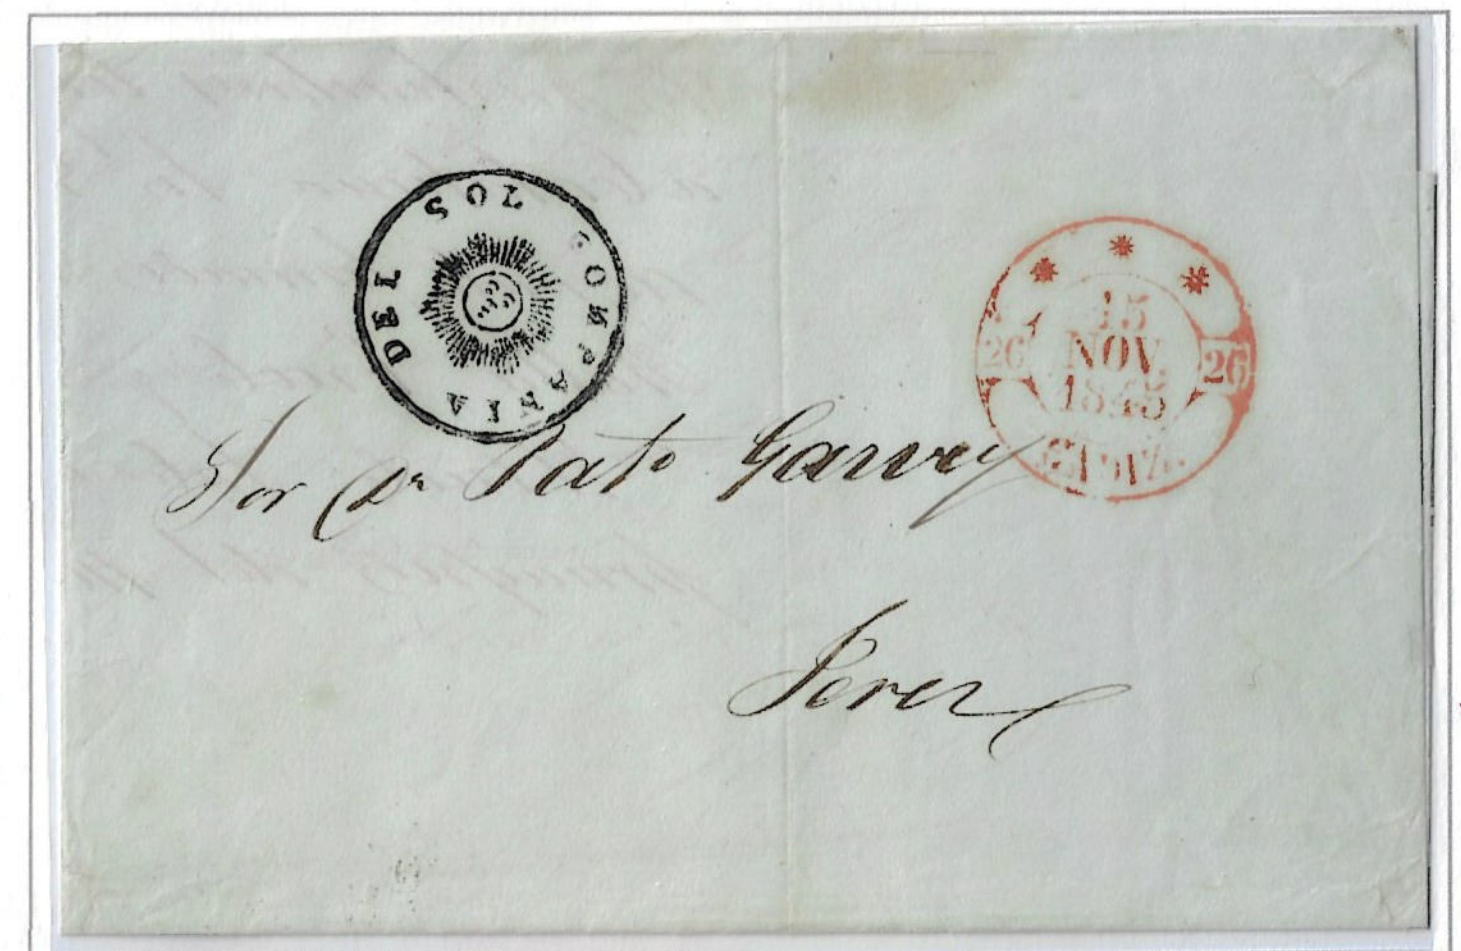 COMPAÑIA DEL SOL
15
NOV.
1845
26 26
CADIZ.
Sor Dn Pato Garvey
Jerez